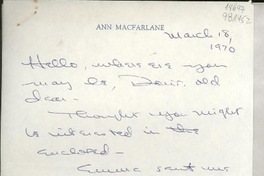 19647
ANN MACFARLANE
March 18,
1970
Hello, where ere you
may be, Doris, old
dear—
Thought you might
be interested in the
enclosed—
Emma sent me